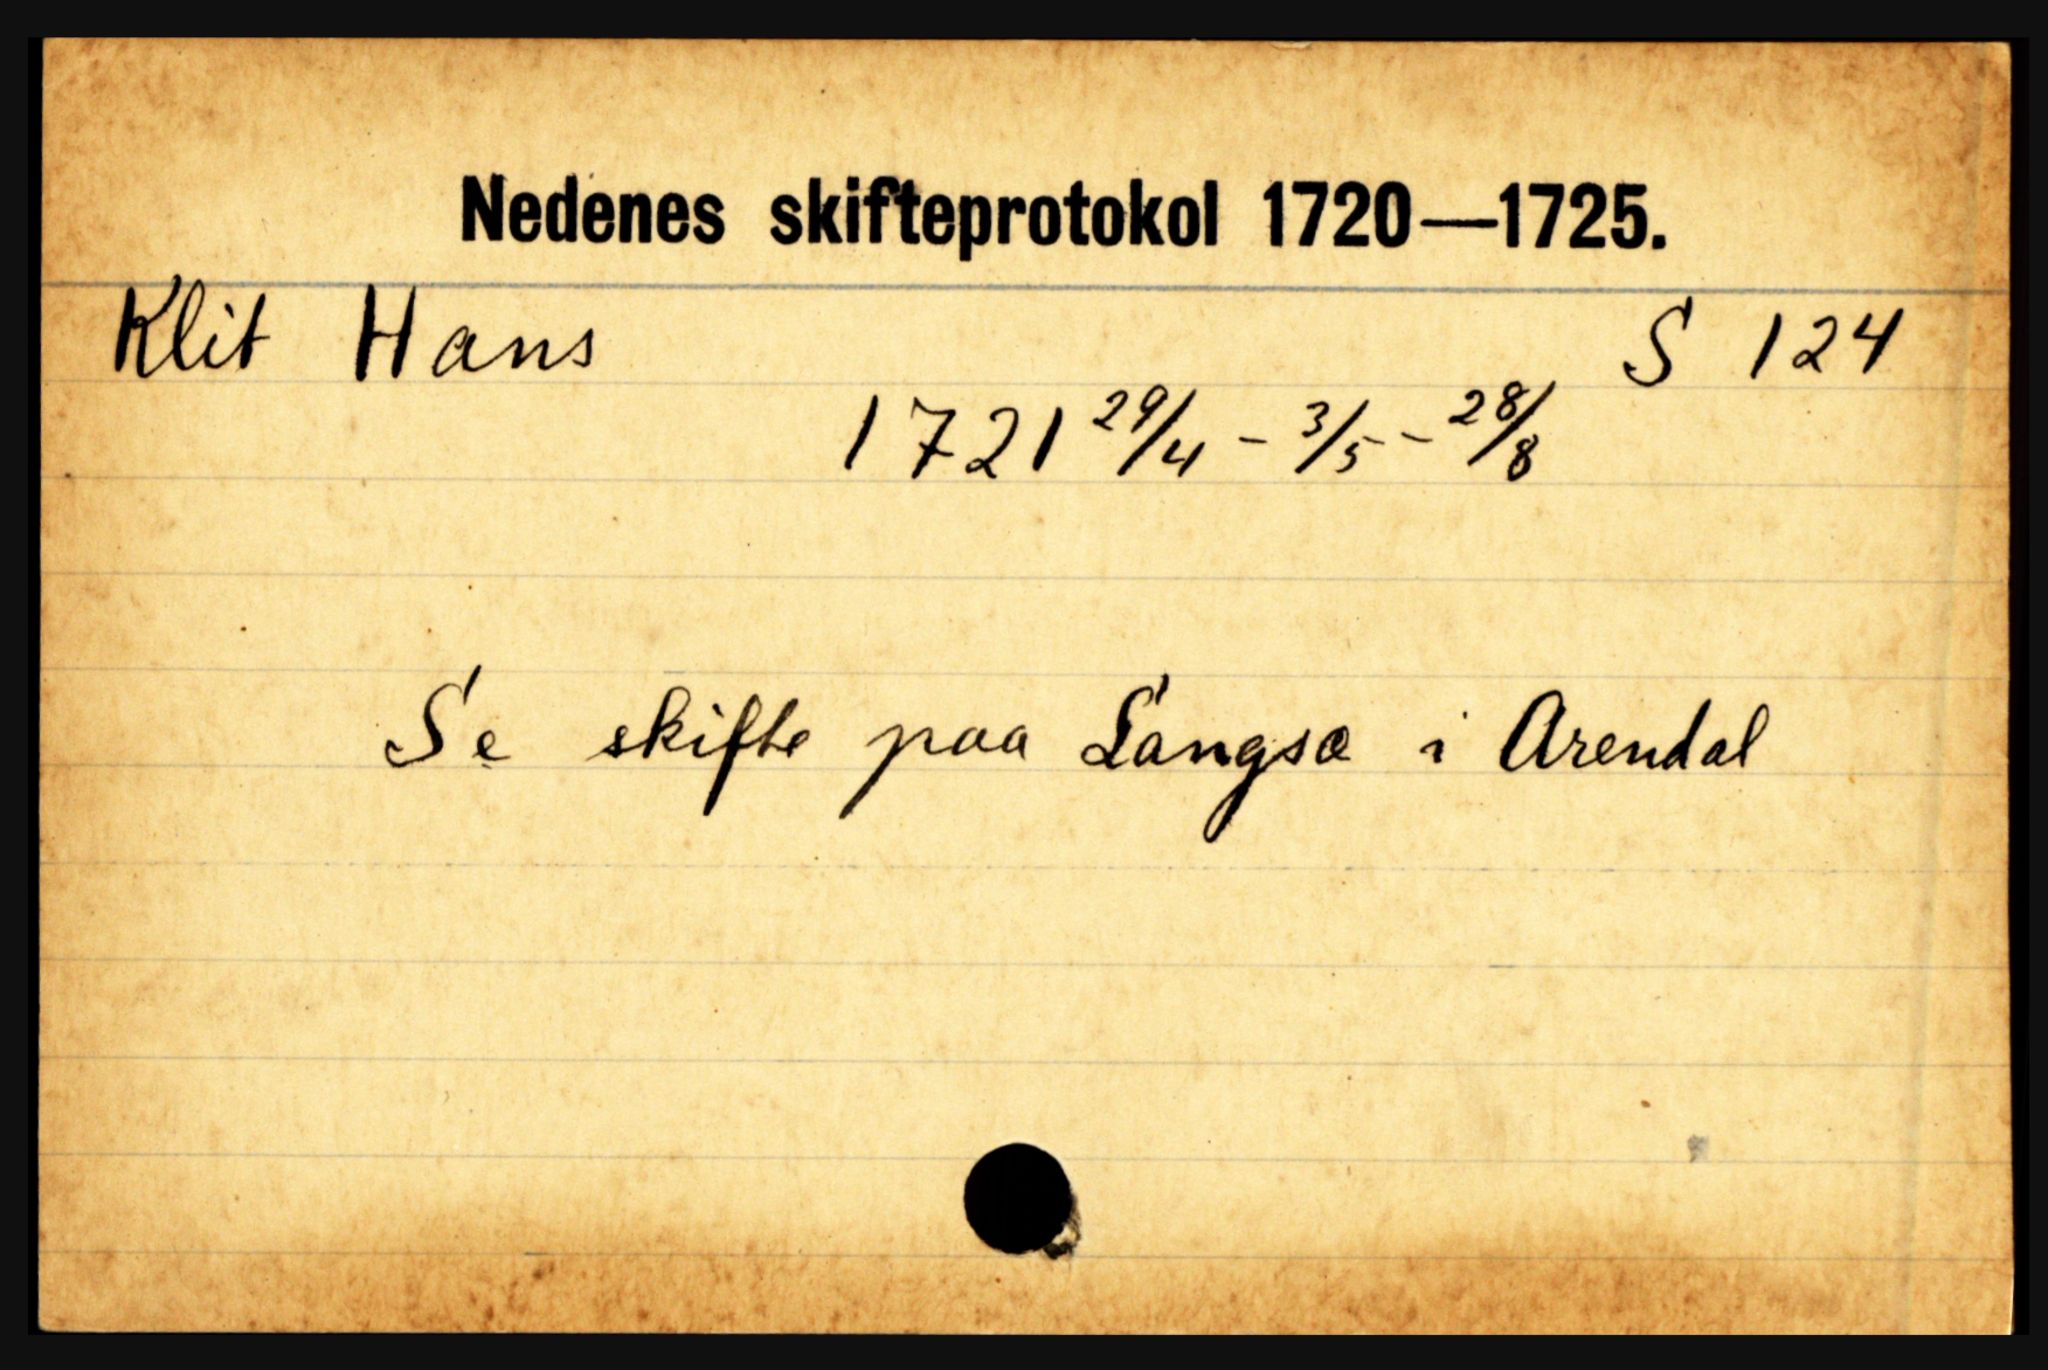 Nedenes skifteprotokol 1720—1725.
Klit Hans S 124
1721 29/4 - 3/5 - 28/8
Se skifte paa Langsæ i Arendal